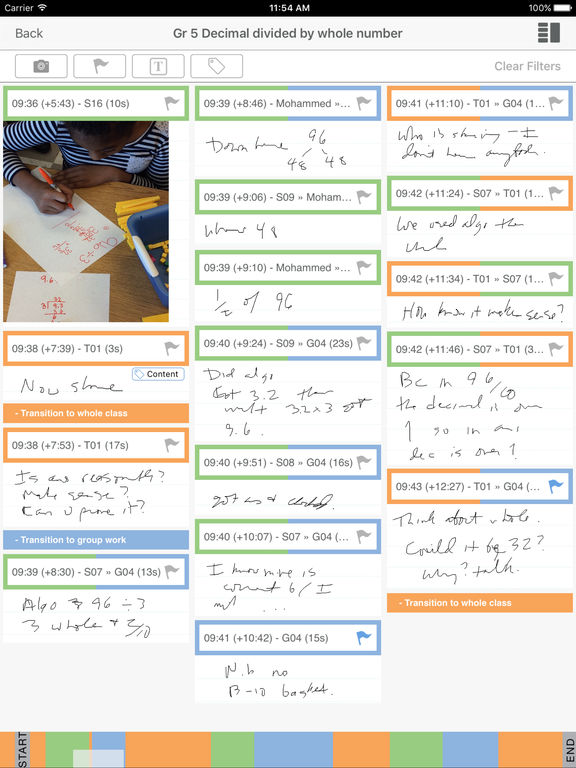 Carrier
11:54 AM
100%
Back
Gr 5 Decimal divided by whole number
T
Clear Filters
09:36 (+5:43) - S16 (10s)
9.6
09:38 (+7:39) - T01 (3s)
Content
Now share
- Transition to whole class
09:38 (+7:53) - T01 (17s)
Is ans reasonable?
Make sense?
Can u prove it?
- Transition to group work
09:39 (+8:30) - S07 » G04 (13s)
Algo 96 ÷ 3
3 whole + 2/10
09:39 (+8:46) - Mohammed »...
96
48 48
09:39 (+9:06) - S09 » Moham...
Where 48
09:39 (+9:10) - Mohammed »...
1/2 of 96
09:40 (+9:24) - S09 » G04 (23s)
Did algo
Got 3.2 then
mult 3.2x3 got
9.6.
09:40 (+9:51) - S08 » G04 (16s)
got
09:40 (+10:07) - S07 » G04 (...
I know mine is
correct b/ I
mult ...
09:41 (+10:42) - G04 (15s)
N.b no
B-10 basket.
09:41 (+11:10) - T01 » G04 (1...
Who is sharing - I
don't hear anybody.
09:42 (+11:24) - S07 » T01 (1...
We used algo then
09:42 (+11:34) - T01 » S07 (1...
How know it makes sense?
09:42 (+11:46) - S07 » T01 (3...
Bc in 96/
the decimal is over
1 so in ans
dec is over 1
09:43 (+12:27) - T01 » G04 (...
Think about whole.
Could it be 32?
Why? talk.
- Transition to whole class
START
END